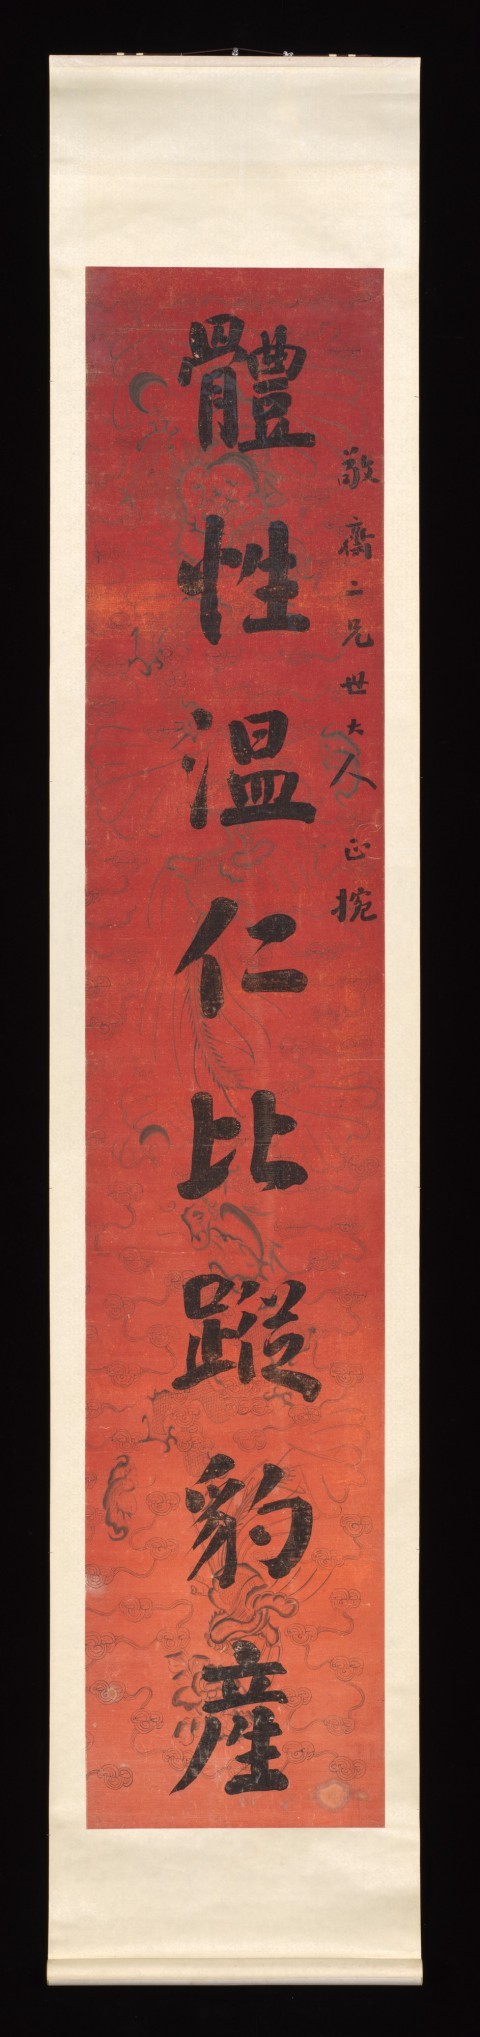 敬齋二兄世大人正捥
體性温仁比蹤豹產